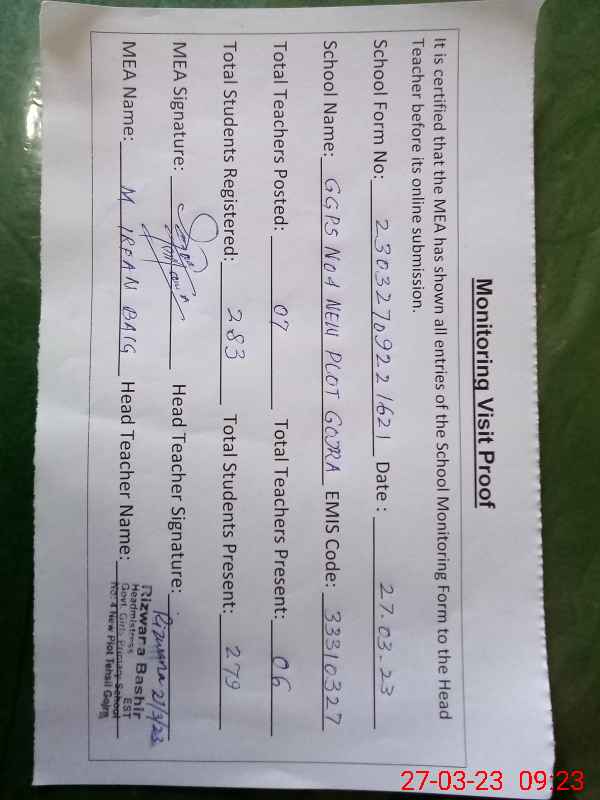 Monitoring Visit Proof
It is certified that the MEA has shown all entries of the School Monitoring Form to the Head
Teacher before its online submission.
School Form No: 2303270922 1621 Date : 27.03.23
School Name: GGPS NO4 NEW PLOT GOJRA EMIS Code: 33310327
Total Teachers Posted: 07 Total Teachers Present: 06
Total Students Registered: 283 Total Students Present: 279
MEA Signature: Head Teacher Signature: Rizwana 27/3/23
MEA Name: M IRFAN BAIG Head Teacher Name:
Rizwana Bashir
Headmistress EST
Govt. Girls Primary School
No. 4 New Plot Tehsil Gojra
27-03-23 09:23